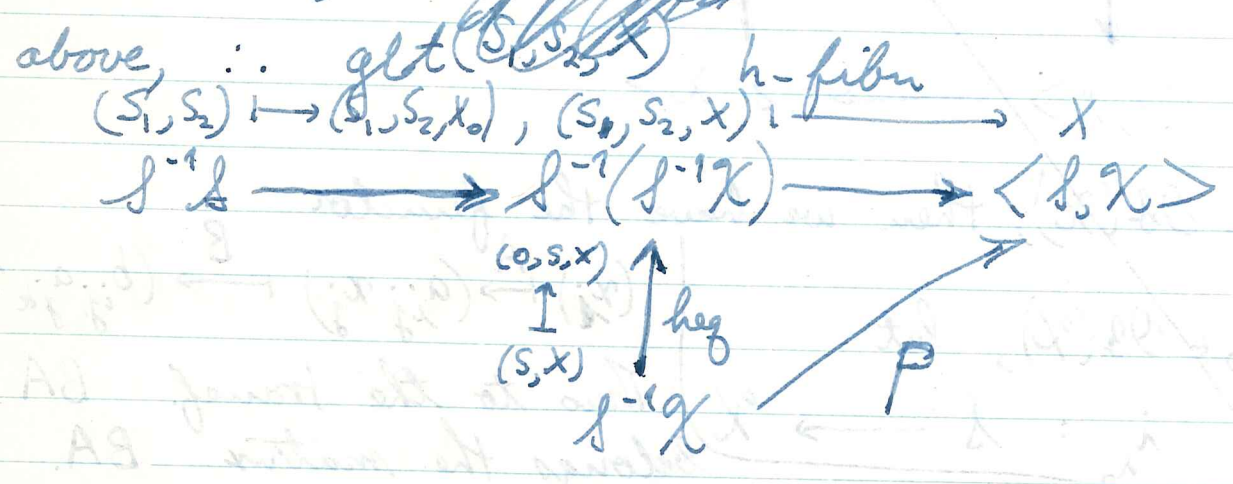 above, ∴ get h-fibn
(S₁, S₂) ⟼ (S₁, S₂, X₀), (S₁, S₂, X) ⟼ X
𝒮⁻¹𝒮 ⟶ 𝒮⁻¹(𝒮⁻¹𝒳) ⟶ <𝒮, 𝒳>
(0, S, X)
↥ ↑ heq
(S, X) p
𝒮⁻¹𝒳